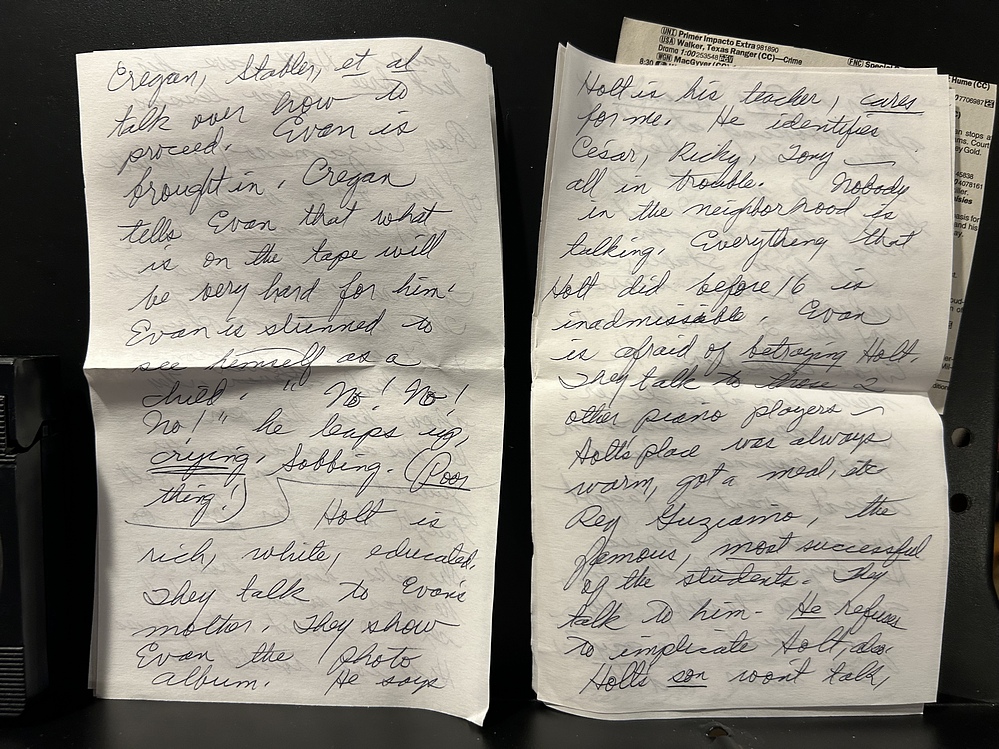 Cregan, Stabler, et al
talk over how to
proceed. Evan is
brought in. Cregan
tells Evan that what
is on the tape will
be very hard for him.
Evan is stunned to
see himself as a
child. "No! No!
No!" he leaps up,
crying. Sobbing. (Poor
thing!)
Holt is
rich, white, educated.
They talk to Evan's
mother. They show
Evan the photo
album. He says
Holt is his teacher, cares
for me. He identifies
César, Ricky, Tony —
all in trouble. Nobody
in the neighborhood is
talking. Everything that
Holt did before 16 is
inadmissable. Evan
is afraid of betraying Holt.
They talk to these 2
other piano players —
Holt's place was always
warm, got a meal, etc
Rey Guziamo, the
famous, most successful
of the students. They
talk to him - He refuses
to implicate Holt, also.
Holt's son won't talk,
(UNI) Primer Impacto Extra 981890
(USA) Walker, Texas Ranger (CC)—Crime
Drama 1:00 253548
(WGN) MacGyver (CC)
8:30
(FNC) Special
Hume (CC)
7706987
en stops a
ms. Court
ey Gold.
45838
4078161
asis for
and his